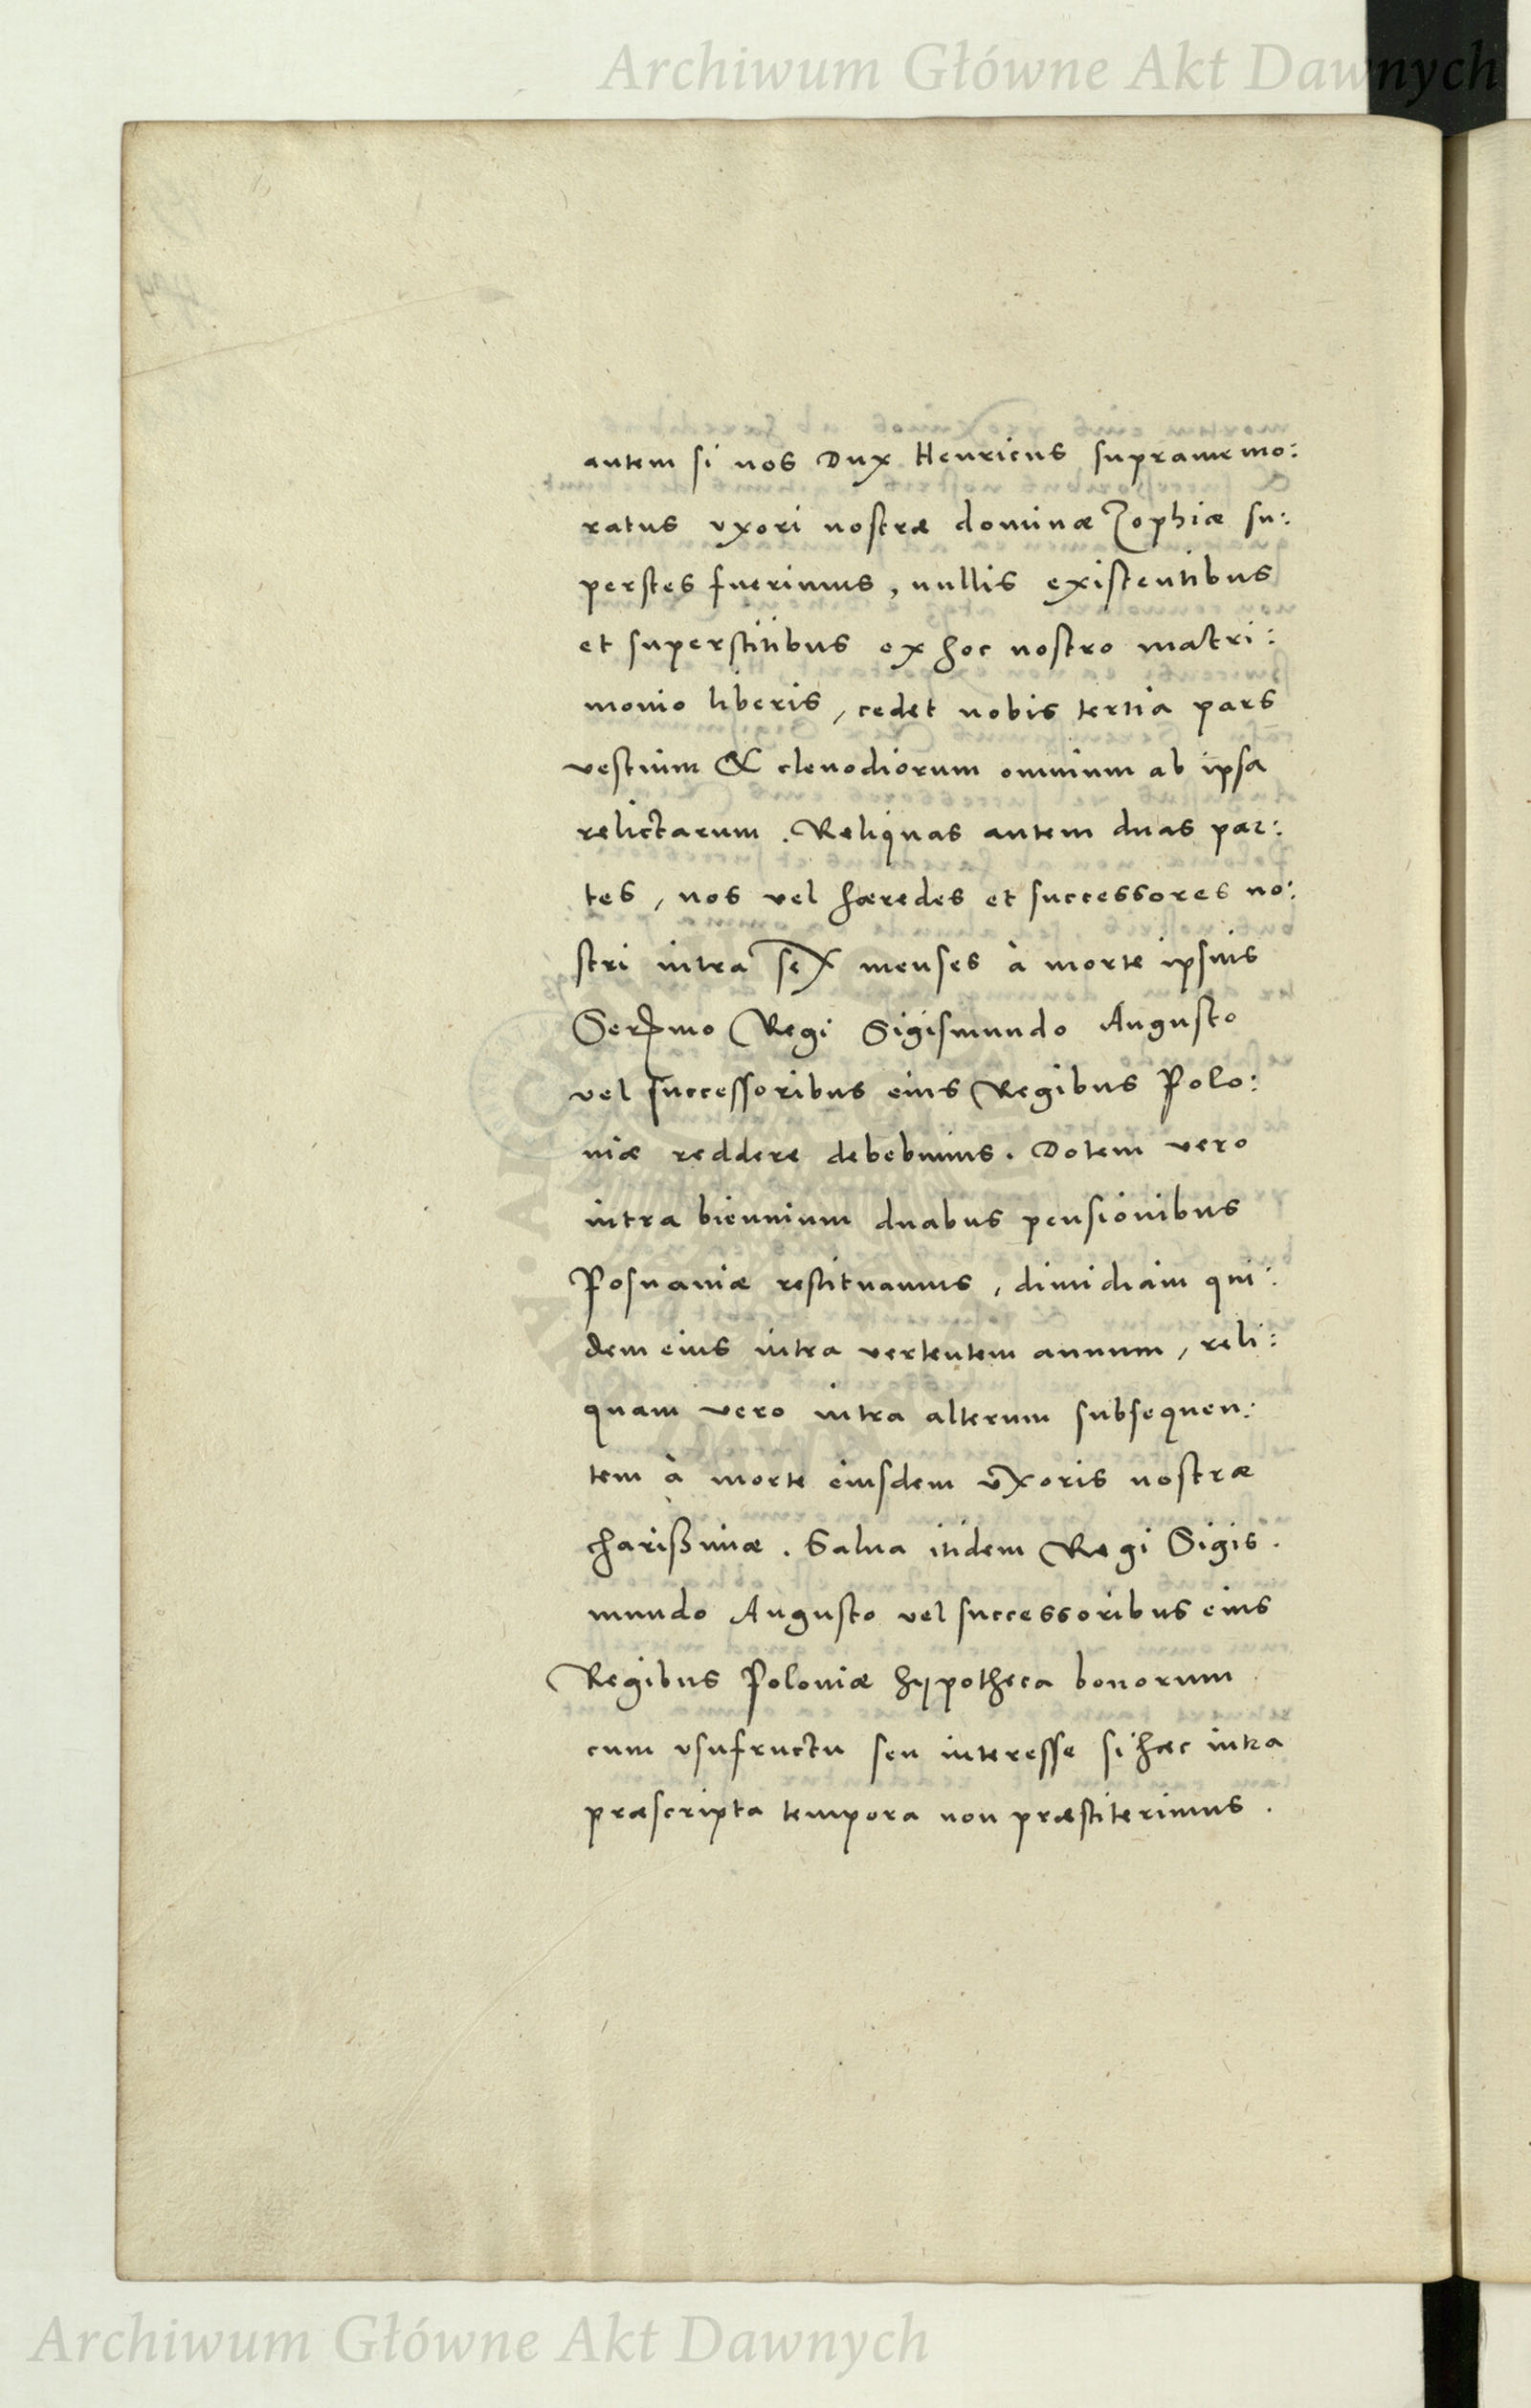 Archiwum Główne Akt Dawnych
autem si nos Dux Henricus supramemo:
ratus vxori nostræ dominæ Zophiæ su:
perstes fuerimus, nullis existentibus
et superstitibus ex hoc nostro matri:
monio liberis, cedet nobis tertia pars
vestium & clenodiorum omnium ab ipsa
relictarum. Reliquas autem duas par:
tes, nos vel hæredes et successores no:
stri intra sex menses à morte ipsius
Serᵐᵒ Regi Sigismundo Augusto
vel successoribus eius Regibus Polo:
niæ reddere debebimus. Dotem vero
intra biennium duabus pensionibus
Posnaniæ restituamus, dimidiam qui:
dem eius intra vertentem annum, reli:
quam vero intra alterum subsequen:
tem à morte eiusdem vxoris nostræ
charißimæ. Salua itidem Regi Sigis.
mundo Augusto vel successoribus eius
Regibus Poloniæ hypotheca bonorum
cum vsufructu seu interesse si hæc intra
præscripta tempora non præstiterimus.
Archiwum Główne Akt Dawnych